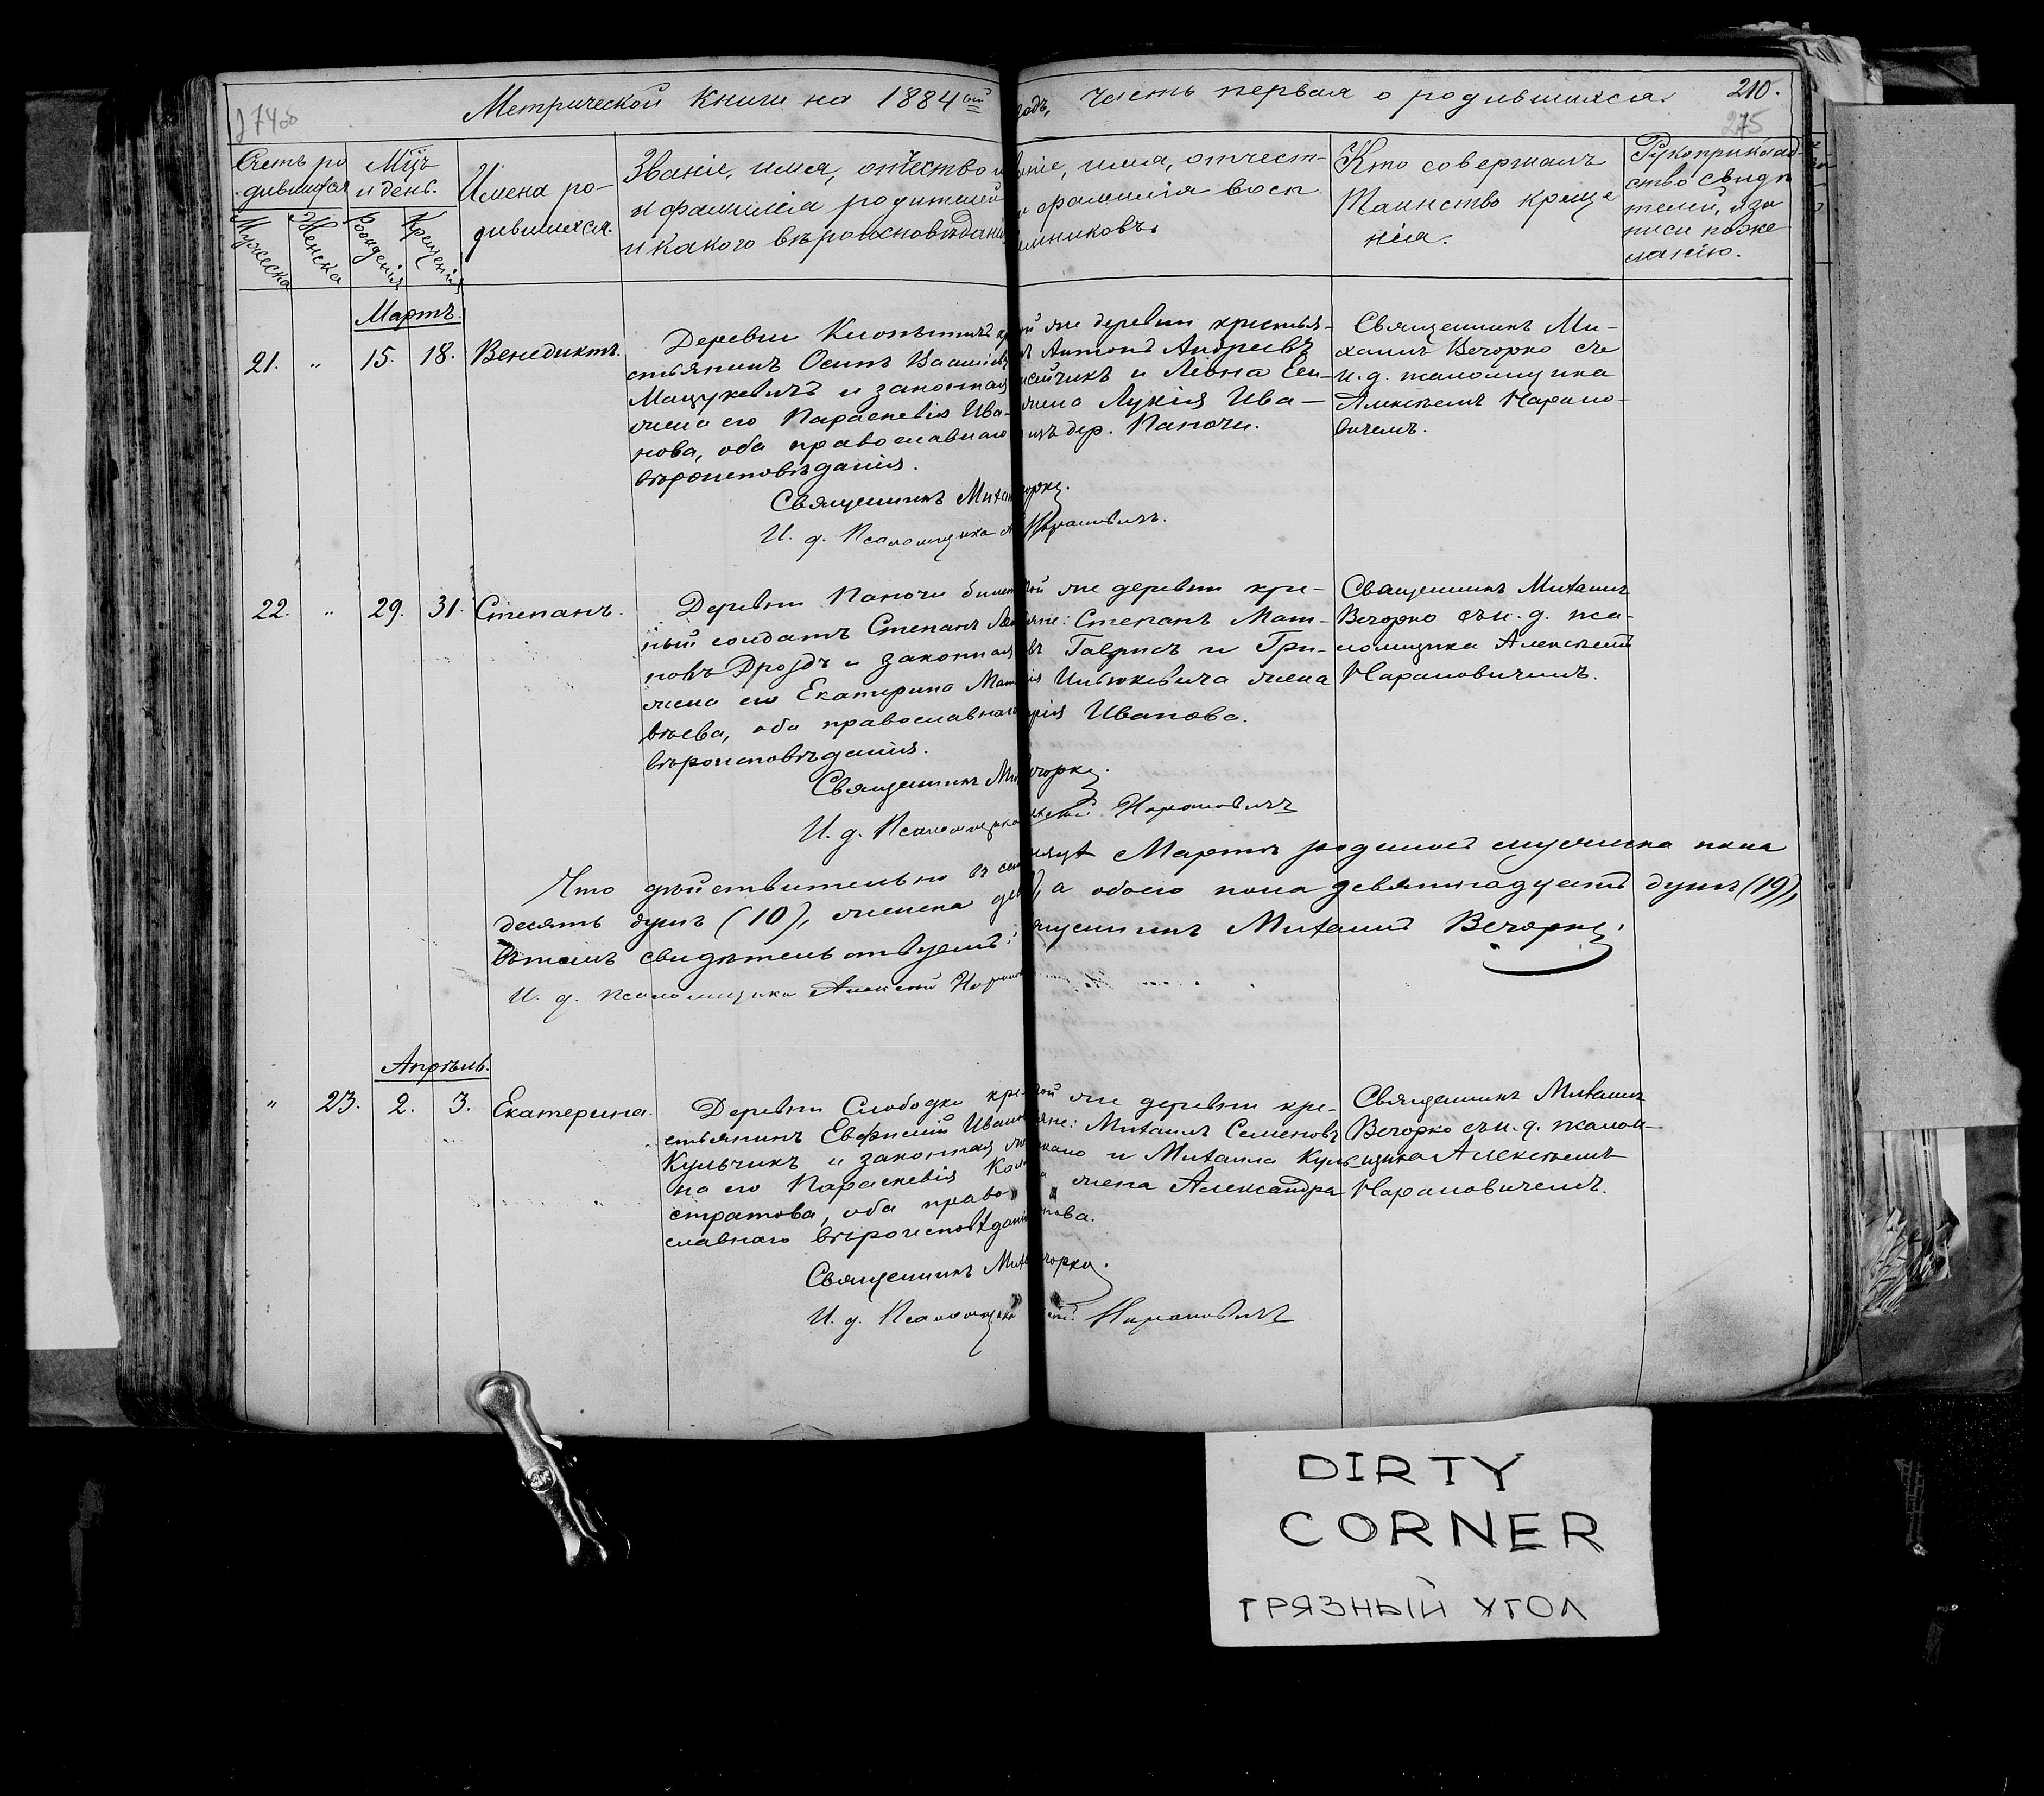 Метрической книги на 1884ый годъ, часть первая о родившихся. 210.
275
Счетъ родившихся
Мцъ и день.
Имена родившихся.
Званіе, имя, отчество
и фамилія родителей
и какого вѣроисповѣданія
званіе, имя, отчест-
фамилія восп
емниковъ.
Кто совершалъ
Таинство креще
нія.
Рукоприклад-
ство свидѣ
телей, о за
писи по же
ланію.
Мужеска
Женска
Рожденія
Крещенія
Мартъ.
21. " 15. 18. Венедиктъ.
Деревни
стьянинъ Осипъ
Мацукевичъ и законная
жена его Параскевія Ива-
нова, оба православнаго
вѣроисповѣданія.
же деревни крестья-
Антонъ Андреевъ
и Леона Еси-
жена Лукія Ива-
изъ дер. Паночи.
Священникъ Ми-
хаилъ Вечорко съ
и. д. псаломщика
Алексѣемъ Нарано-
вичемъ.
Священникъ
И. д. Псаломщика Нарановичъ.
22. " 29. 31. Степанъ.
Деревни Паночи билет
ный солдатъ Степанъ
новъ Дроздъ и законная
жена его Екатерина Мат
вѣева, оба православнаго
вѣроисповѣданія.
же деревни кре-
Степанъ Мат-
въ Гаврисъ и Гри-
жена
Иванова.
Священникъ Михаилъ
Вечорко съ и. д. пса-
ломщика Алексѣемъ
Нарановичемъ.
Священникъ
И. д. Псаломщика Нарановичъ
Что дѣйствительно въ Мартѣ родилось мужеска пола
десять душъ (10), женска а обоего пола девятнадцать душъ (19),
въ томъ свидѣтельствуемъ: Михаилъ Вечорко.
И. д. псаломщика Алексѣй
Апрѣль.
" 23. 2. 3. Екатерина.
Деревни Слободки кре
стьянинъ Евфимій Иван
Кульчикъ и законная
на его Параскевія Кали
стратова, оба право-
славнаго вѣроисповѣданія
же деревни кре-
Михаилъ Семеновъ
и Михаила Куль-
жена Александра
Священникъ Михаилъ
Вечорко съ и. д. псалом-
щика Алексѣемъ
Нарановичемъ.
Священникъ
И. д. Псаломщика Нарановичъ
DIRTY
CORNER
ГРЯЗНЫЙ УГОЛ